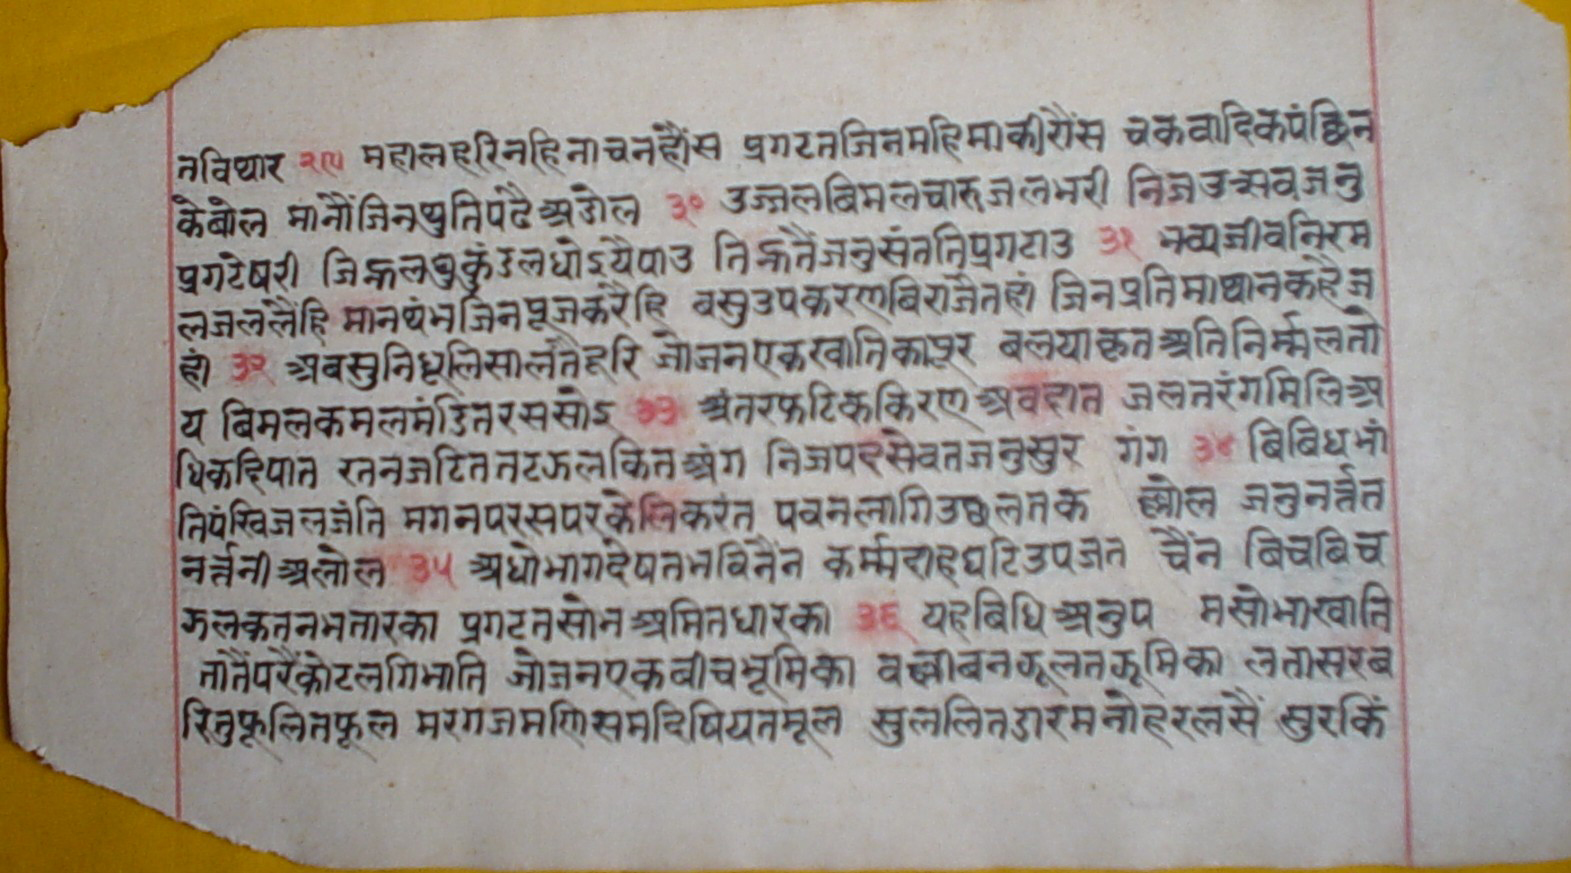 तविथार २९ महालहरिनहिनाचनहौंस प्रगटतजिनमहिमाकीरौंस चकवादिकपंछिन
केबोल मानौंजिनथुतिपंढैअडोल ३० उज्जलबिमलचारुजलभरी निजउत्सवजनु
प्रगटेषरी जिह्मलघुकुंडलधोइयैपाउ तिह्मतैंजनुसंततिप्रगटाउ ३१ भव्यजीवनिरम
लजललैंहि मानथंभजिनपूजकरैहि वसुउपकरणबिराजैतहां जिनप्रतिमाथानकहैज
हां ३२ अबसुनिधूलिसालतैंहूरि जोजनएकखातिकापूर बलयाकृतअतिनिर्म्मलतो
य बिमलकमलमंडितरससोइ ३३ अंतरफटिककिरणअवदात जलतरंगमिलिअ
धिकहिपात रतनजटिततटझलकितअंग निजपदसेवतजनुसुर गंग ३४ बिबिधभां
तिपंखिजलजंति मगनपरसपरकेलिकरंत पवनलागिउछलतक ल्लोल जनुनर्त्तत
नर्त्तनीअलोल ३५ अधोभागदेषतभविनैंन कर्म्मदाहघटिउपजत चैंन बिचबिच
झलकतनभतारका प्रगटतसोनअमितधारका ३६ यहबिधिअनुप मसोभाखाति
तातैंपरैंकोटलगिभाति जोजनएकबीचभूमिका वल्लीबनझूलतझूमिका लतासरब
रितुफूलितफूल मरगजमणिसमदिषियतमूल सुललितडारमनोहरलसैं सुरकिं